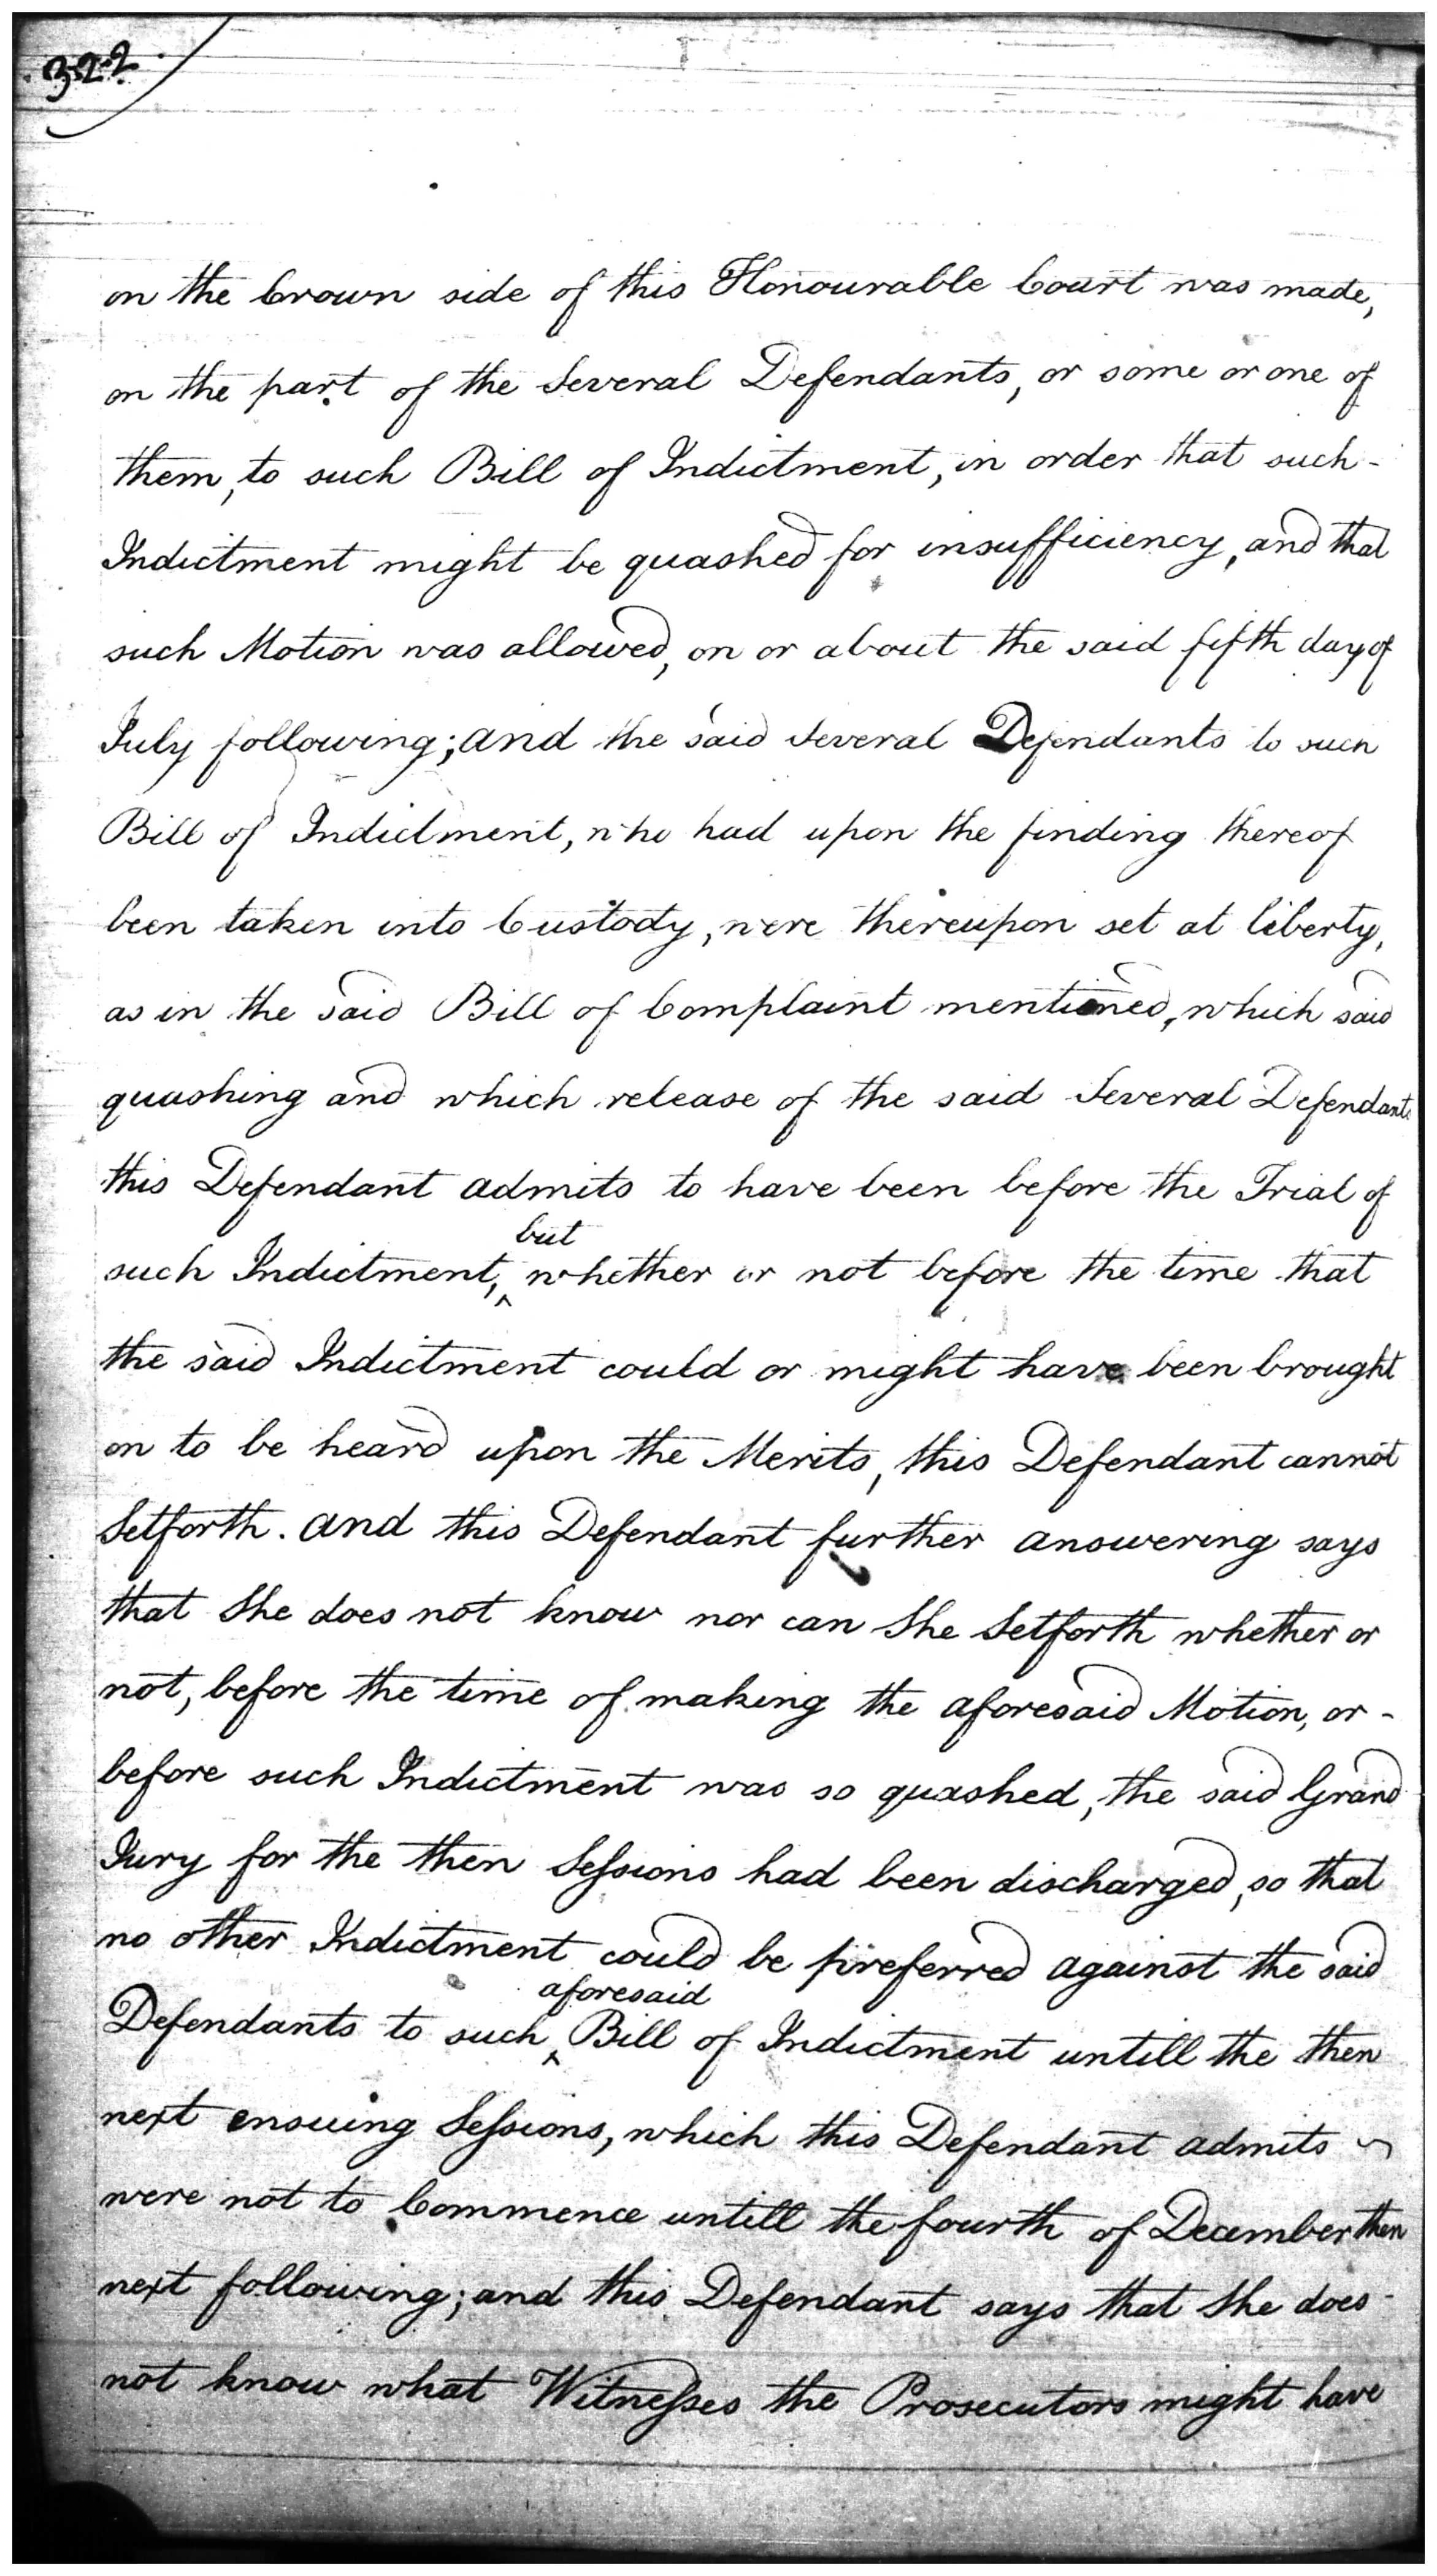 322
on the Crown side of this Honourable Court was made,
on the part of the Several Defendants, or some or one of
them, to such Bill of Indictment, in order that such -
Indictment might be quashed for insufficiency, and that
such Motion was allowed, on or about the said fifth day of
July following; and the said Several Defendants to such
Bill of Indictment, who had upon the finding thereof
been taken into Custody, were thereupon set at liberty,
as in the said Bill of Complaint mentioned, which said
quashing and which release of the said Several Defendants
this Defendant admits to have been before the Trial of
but
such Indictment, ‸ whether or not before the time that
the said Indictment could or might have been brought
on to be heard upon the Merits, this Defendant cannot
Setforth. and this Defendant further answering says
that She does not know nor can She Setforth whether or
not, before the time of making the aforesaid Motion, or -
before such Indictment was so quashed, the said Grand
Jury for the then Sessions had been discharged, so that
no other Indictment could be preferred against the said
aforesaid
Defendants to such ‸ Bill of Indictment untill the then
next ensuing Sessions, which this Defendant admits ~
were not to Commence untill the fourth of December then
next following; and this Defendant says that She does -
not know what Witnesses the Prosecutors might have